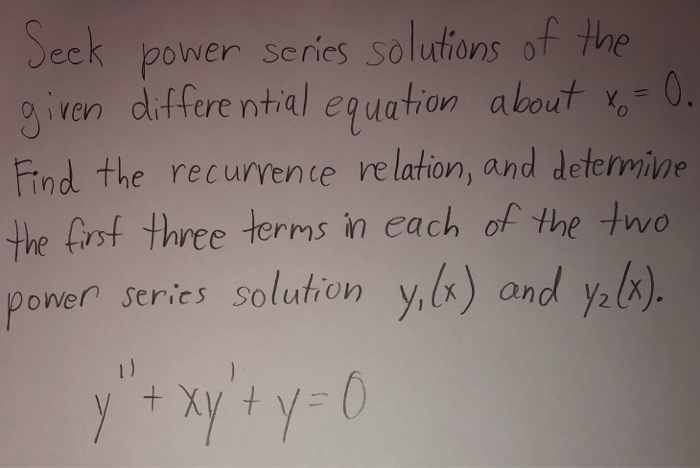 Seek power series solutions of the
given differential equation about x₀ = 0.
Find the recurrence relation, and determine
the first three terms in each of the two
power series solution y₁(x) and y₂(x).
y'' + xy' + y = 0